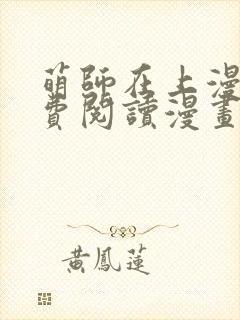 萌師在上漫
費閱讀漫畫
黃鳳蓮